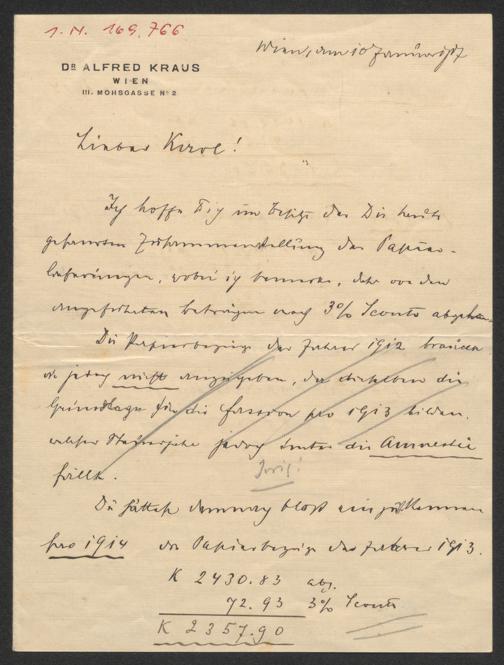 I. N. 169.766
Wien, am 10 Januar 1917
DR ALFRED KRAUS
WIEN
III. MOHSGASSE No 2
Lieber Karl!
Ich hoffe Dich im Besitze der Dir heute
gesandten Zusammenstellung der Papier-
lieferungen, wobei ich bemerke, daß von den
angeführten Beträgen noch 3% Sconto abgehen.
Die Papierbezüge des Jahres 1912 brauchen
wir jedoch nicht anzugeben, da dieselben die
Grundlage für die Fassion pro 1913 bilden,
welches Steuerjahr jedoch unter die Amnestie
fällt.
Du hättest demnach bloß einzubekennen
pro 1914 die Papierbezüge des Jahres 1913.
K 2430.83 abz.
72.93 3% Sconto
K 2357.90